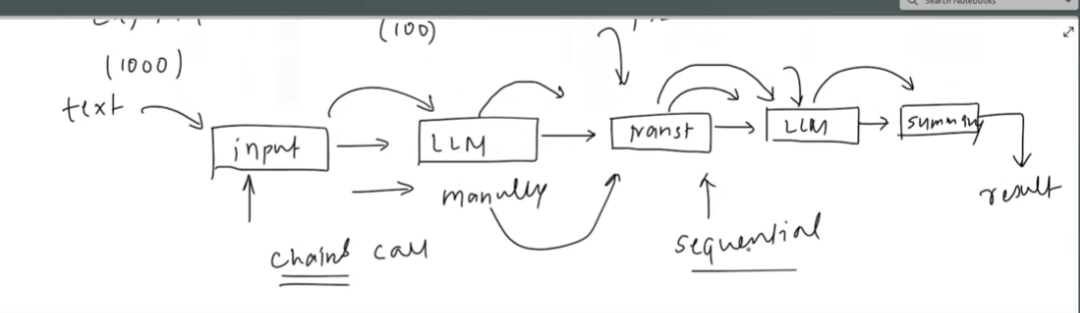 Search Notebooks
(100)
(1000)
text
input
LLM
transt
LLM
summry
manully
result
chains call
sequential